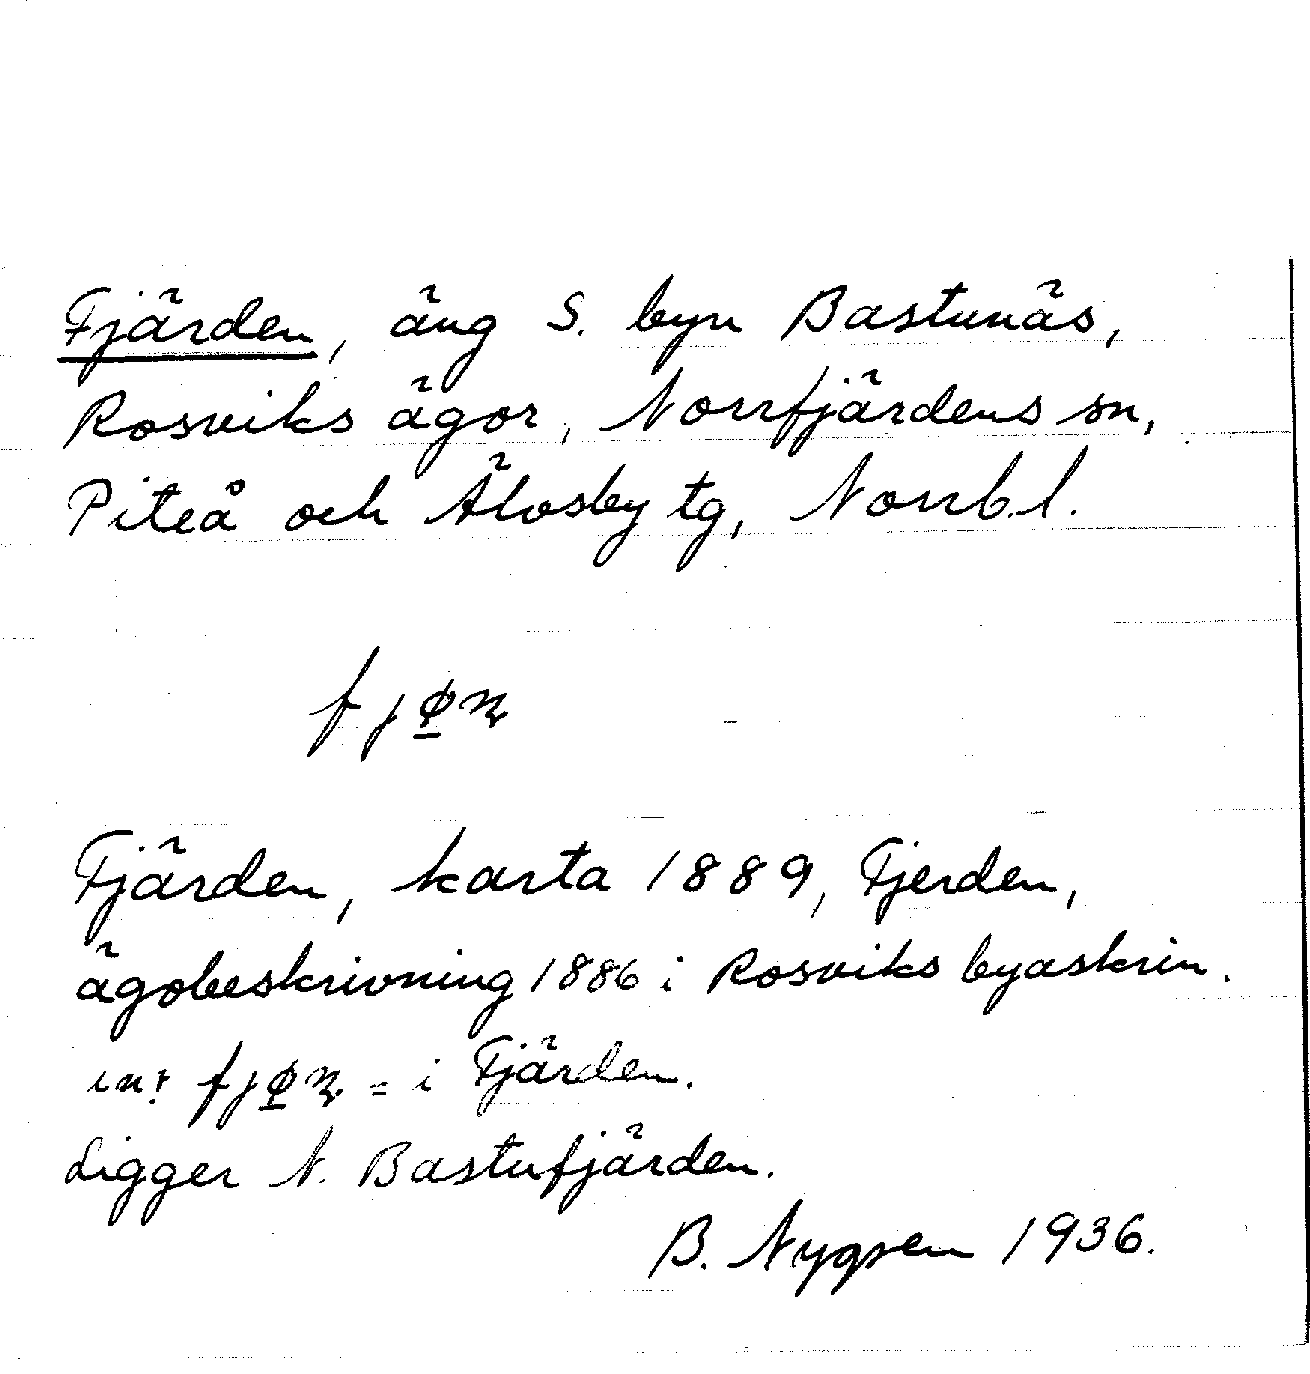 Fjärden, äng S. byn Bastunäs,
Rosviks ägor, Norrfjärdens sn,
Piteå och Älvsby tg, Norrb.l.
Fjärden, karta 1889, Fjerden,
ägobeskrivning 1886 i Rosviks byaskrin.
= i Fjärden.
Ligger N. Bastufjärden.
B. Nygren 1936.